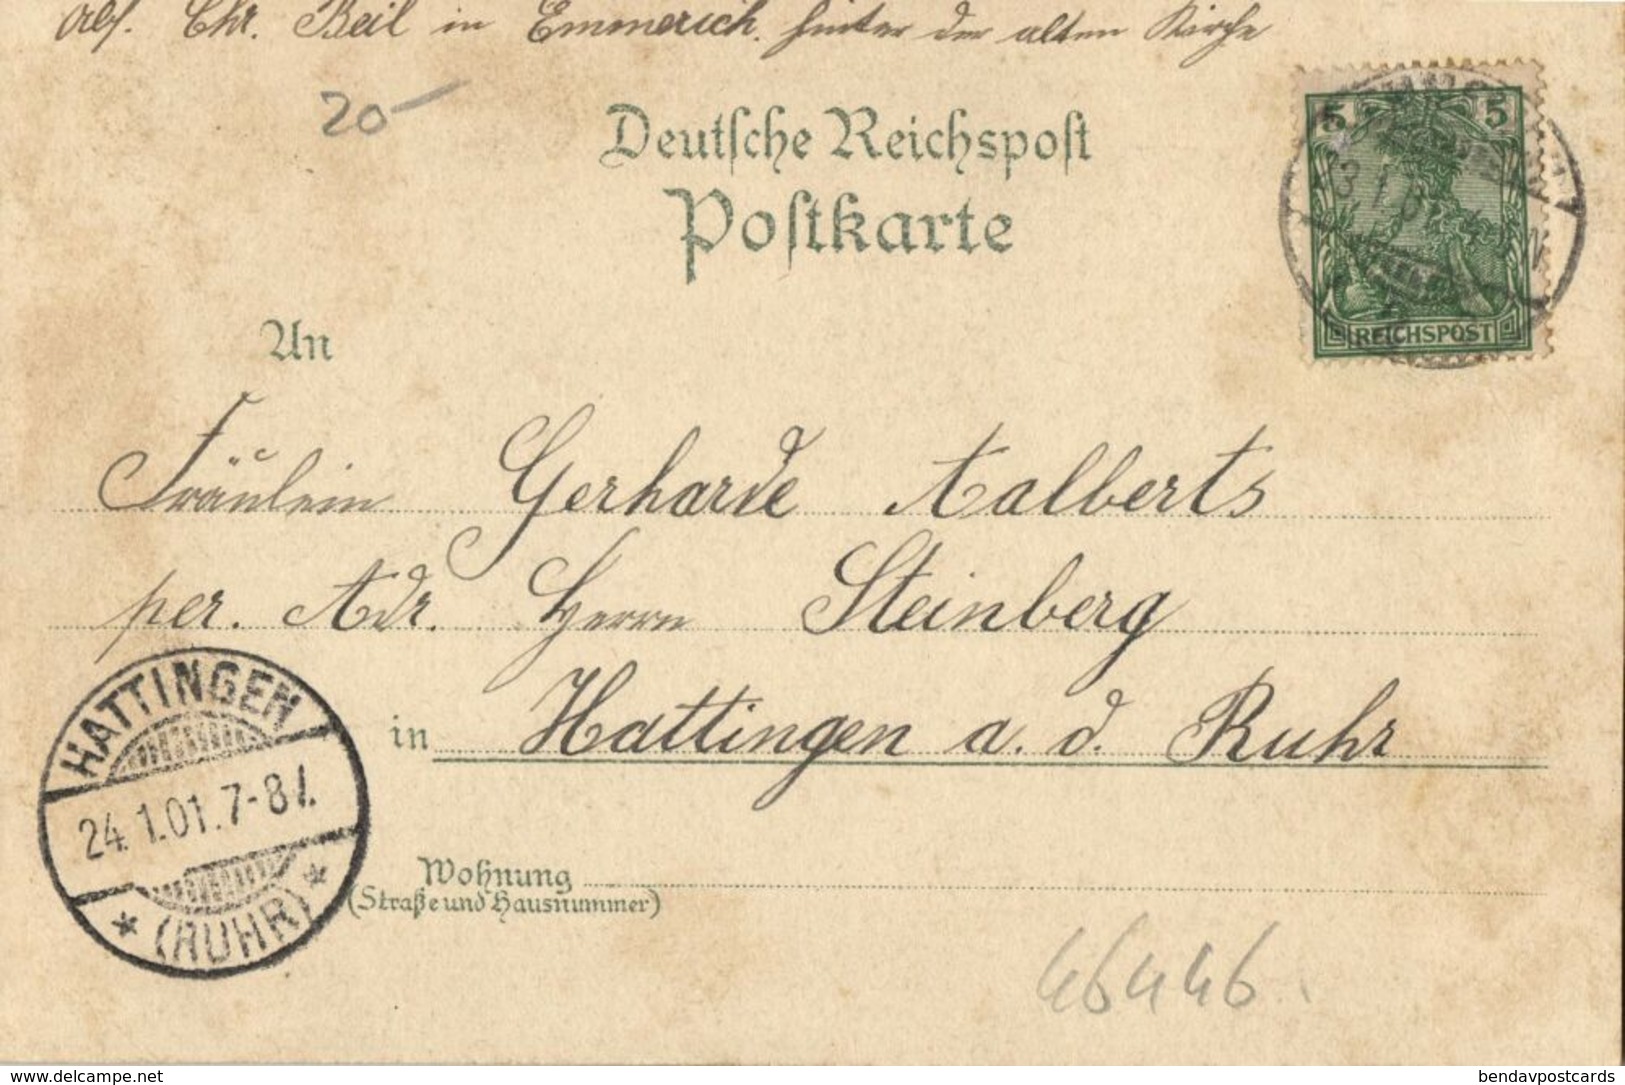 Abs. Chr. Beil in Emmerich. hinter der alten Kirche
20-
Deutsche Reichspost
Postkarte
5 5
REICHSPOST
An
Fräulein Gerharde Aalberts
per. Adr. Herrn Steinberg
in Hattingen a. d. Ruhr
HATTINGEN
24.1.01.7-8
(RUHR)
Wohnung
(Straße und Hausnummer)
46446.
delcampe.net
bendavpostcards